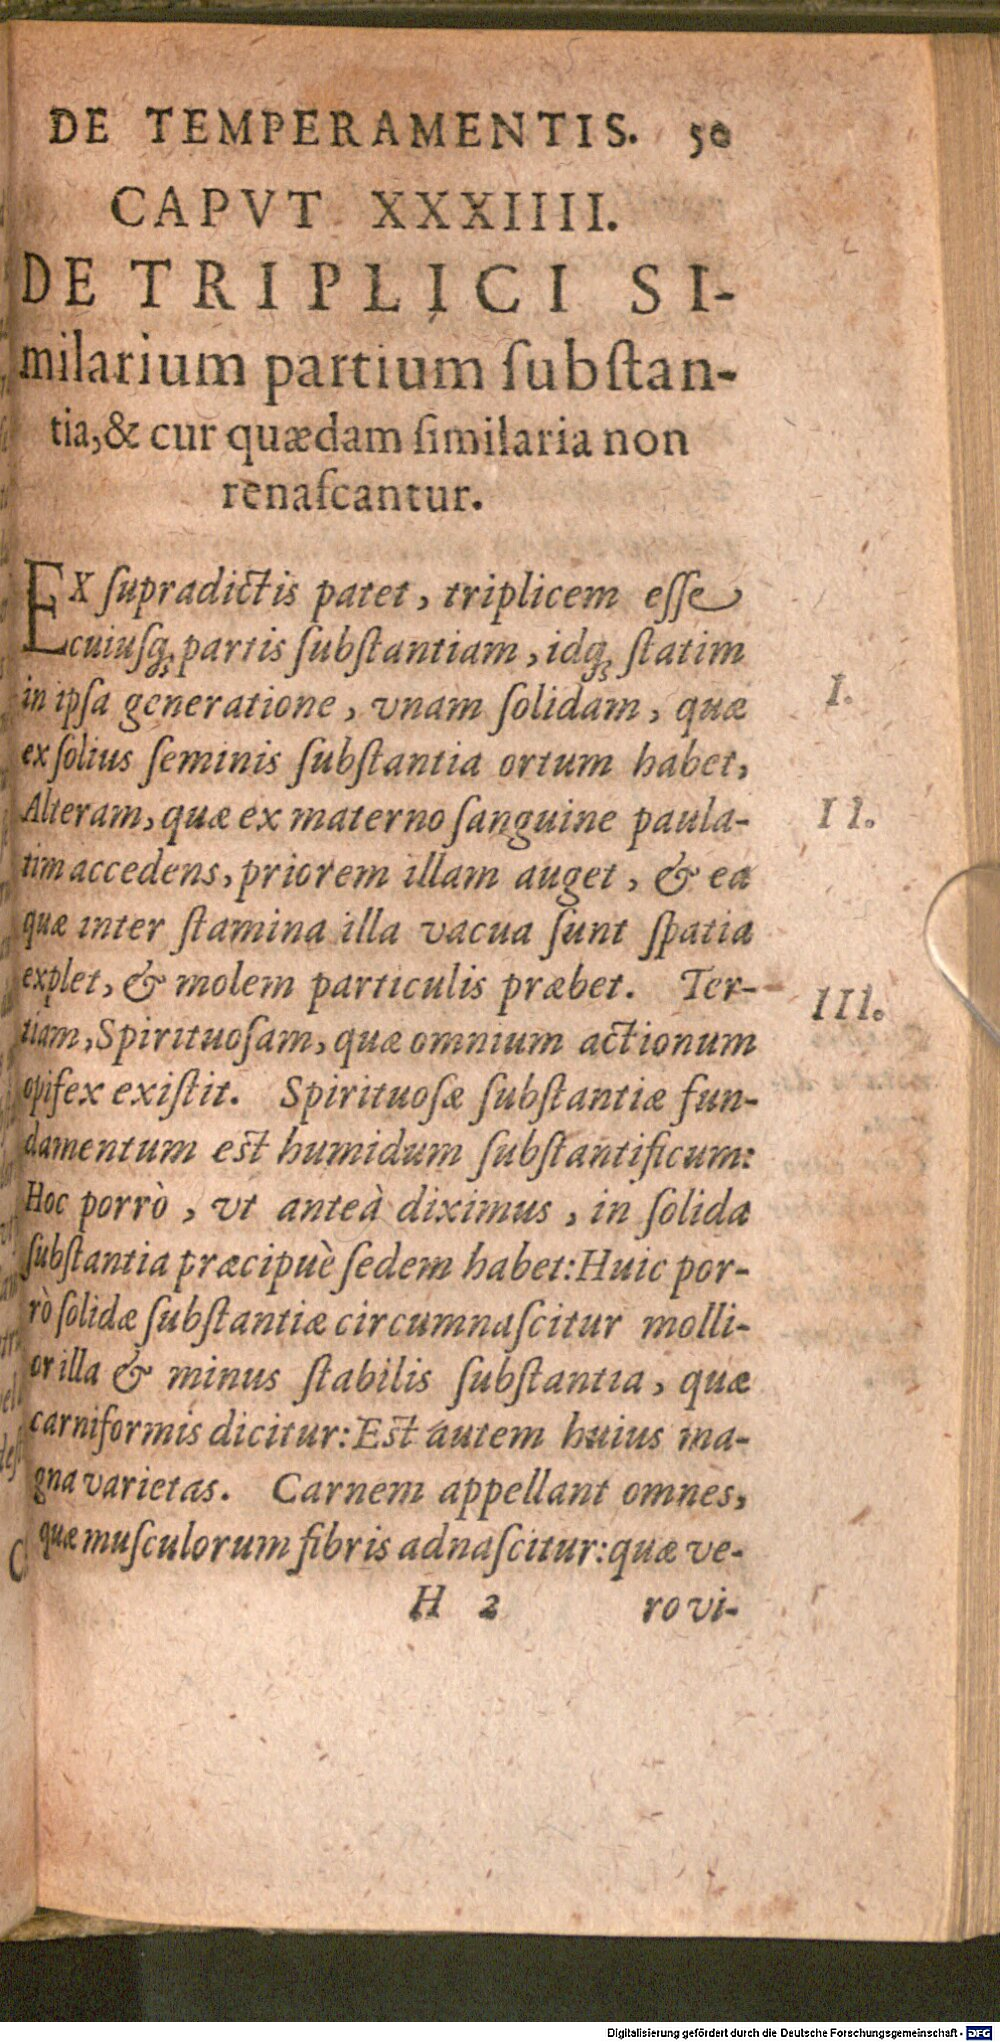 DE TEMPERAMENTIS. 50
CAPVT XXXIIII.
DE TRIPLICI SI-
milarium partium ſubſtan-
tia,& cur quædam ſimilaria non
renaſcantur.
EX ſupradictis patet, triplicem eſſe
cuiuſq; partis ſubſtantiam, idq; ſtatim
in ipſa generatione, vnam ſolidam, quæ
I.
ex ſolius ſeminis ſubſtantia ortum habet,
Alteram, quæ ex materno ſanguine paula-
II.
tim accedens, priorem illam auget, & ea
quæ inter ſtamina illa vacua ſunt ſpatia
explet, & molem particulis præbet. Ter-
III.
tiam, Spirituoſam, quæ omnium actionum
opifex exiſtit. Spirituoſæ ſubſtantiæ fun-
damentum eſt humidum ſubſtantificum:
Hoc porrò, vt anteà diximus, in ſolida
ſubſtantia præcipuè ſedem habet: Huic por-
rò ſolidæ ſubſtantiæ circumnaſcitur molli-
or illa & minus ſtabilis ſubſtantia, quæ
carniformis dicitur: Eſt autem huius ma-
gna varietas. Carnem appellant omnes,
quæ muſculorum fibris adnaſcitur: quæ ve-
H 2 ro vi-
Digitalisierung gefördert durch die Deutsche Forschungsgemeinschaft - DFG